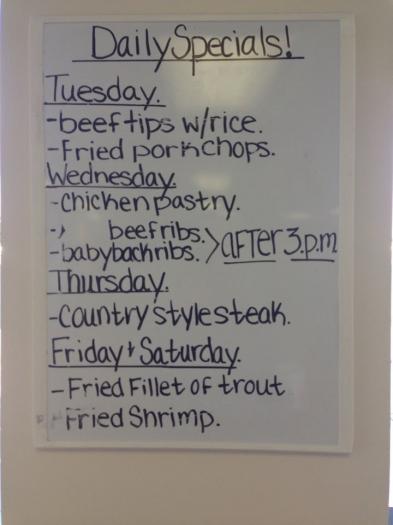 Daily Specials!
Tuesday.
-beef tips w/rice.
-Fried porkchops.
Wednesday.
-Chicken pastry.
- beef ribs.
-babybackribs. >AFTER 3.p.m
Thursday.
-Country style steak.
Friday + Saturday.
-Fried Fillet of trout
-Fried Shrimp.